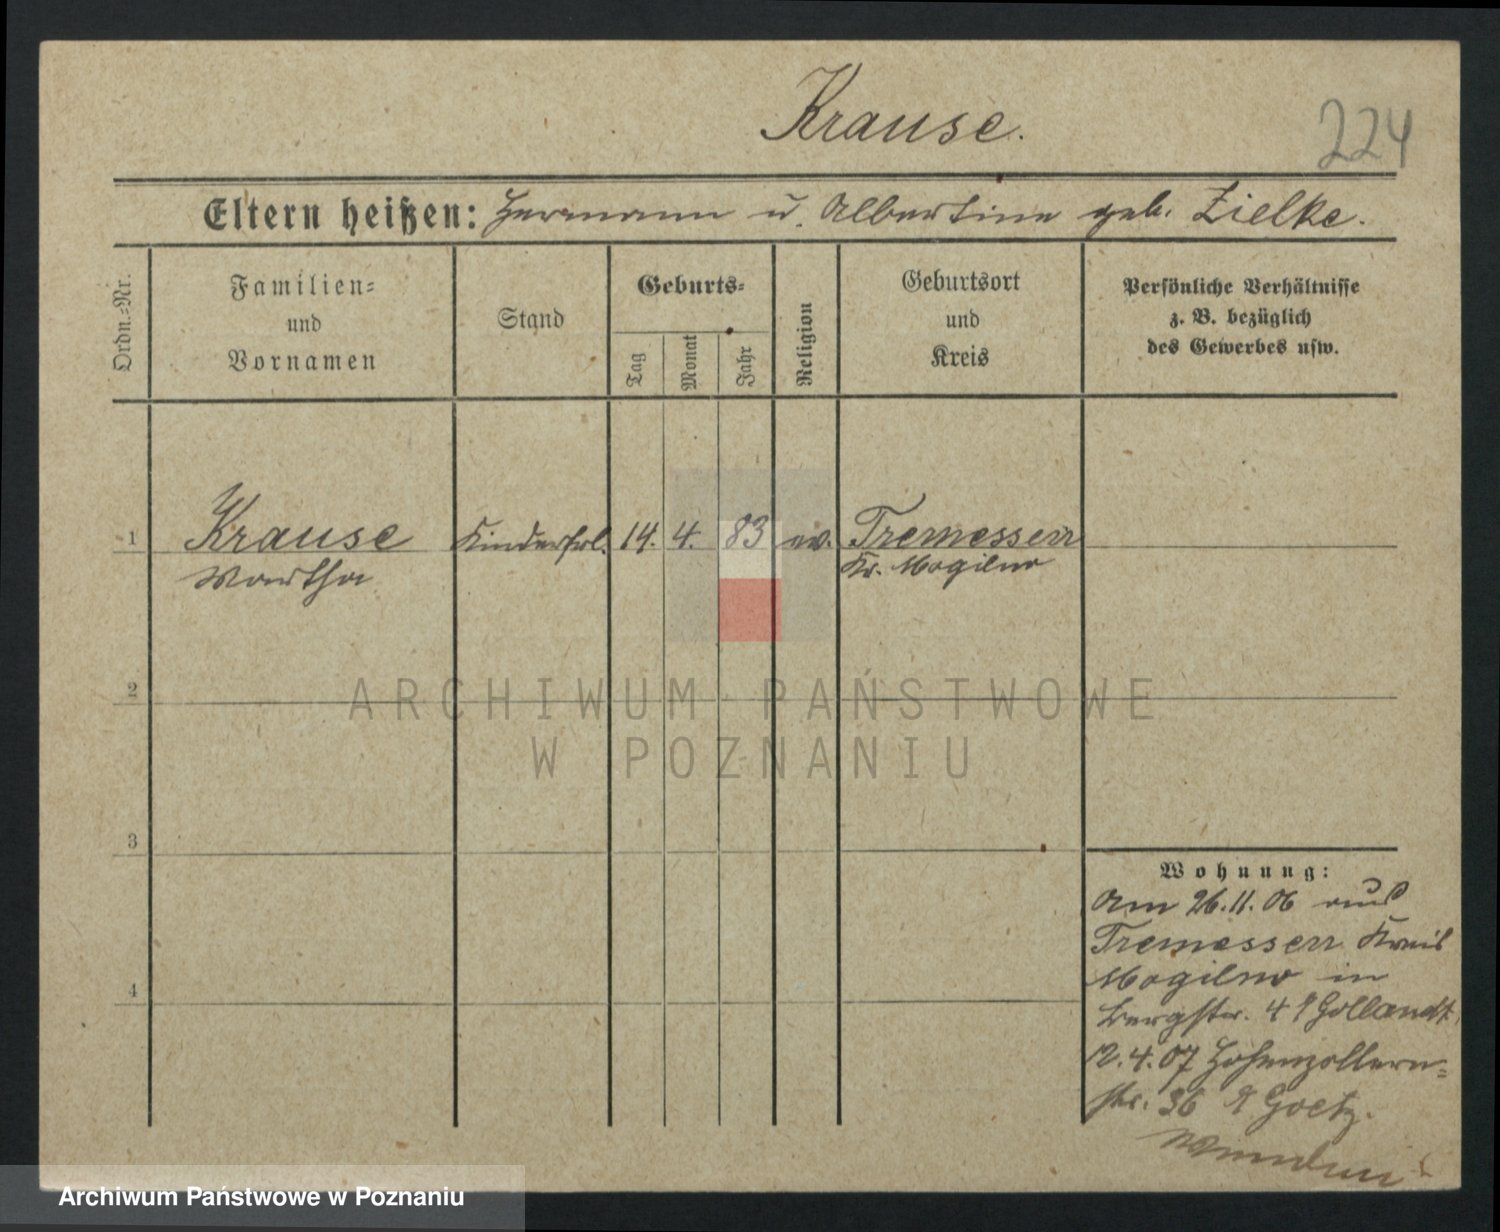 Krause.
224
Eltern heißen: Hermann u. Albertine geb. Zielke.
Ordn.-Nr.
Familien-
und
Vornamen
Stand
Geburts-
Tag
Monat
Jahr
Religion
Geburtsort
und
Kreis
Persönliche Verhältnisse
z. B. bezüglich
des Gewerbes usw.
1 Krause Kinderfrl. 14. 4. 83 ev. Tremessen
Martha Kr. Mogilno
2
ARCHIWUM PAŃSTWOWE
W POZNANIU
3
4
Wohnung:
Am 26.11.06 aus
Tremessen Kreis
Mogilno in
Bergstr. 4 Gollandt
12.4.07 Hohenzollern-
str. 36 Goetz.
Archiwum Państwowe w Poznaniu